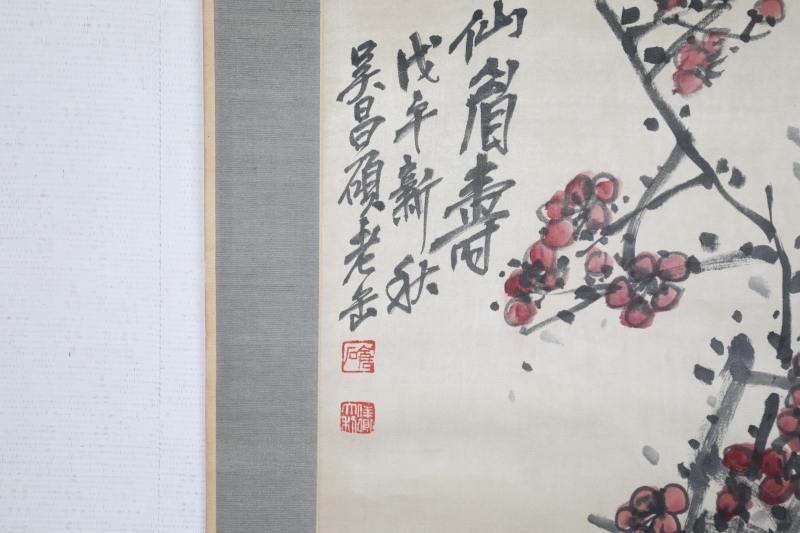 仙眉壽
戊午新秋
吴昌碩老缶